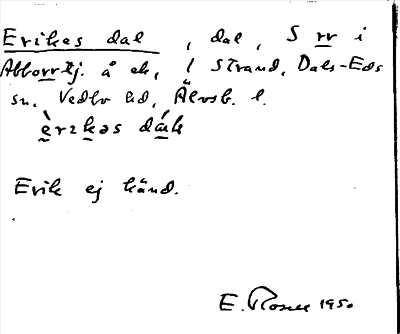 Erikes dal, dal, S rr i
Abborrtj. å ek, 1 Strand, Dals-Eds
sn. Vedbo hd, Älvsb. l.
èrɩkəs dák
Erik ej känd.
E. Rosell 1950